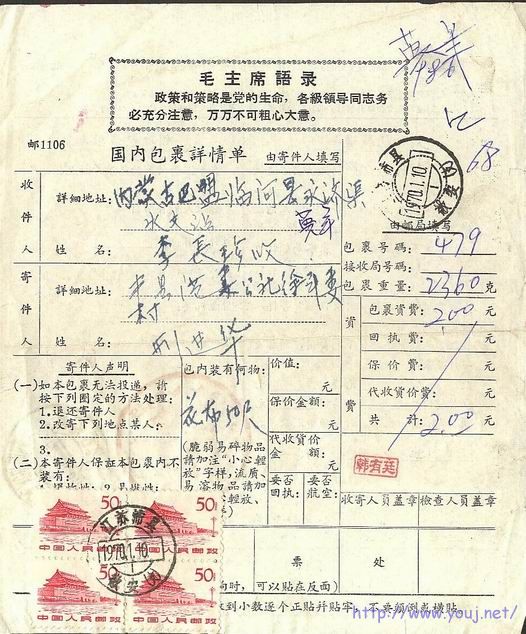 毛主席語录
政策和策略是党的生命，各級領导同志务
必充分注意，万万不可粗心大意。
邮1106
国内包裹詳情单 由寄件人填写
68
江苏沛县
1970.1.10
收件人
詳細地址：内蒙古巴盟临河县永济渠
水文站
姓名：李長珍收
寄件人
詳細地址：
村
姓名：
由邮局填写
包裹号碼：479
接收局号碼：
包裹重量：2360克
資
費
包裹資費：2.00元
回执費：元
保价費：元
代收貨价費：元
共計：2.00元
寄件人声明
(一)如本包裹无法投递，請
按下列圈定的方法处理：
1.退还寄件人
2.改寄下列地点某人：
3.
(二)本寄件人保証本包裹内不
装有：
包内装有何物：
花布50尺
(脆弱易碎物品
請加注“小心輕
放”字样，流质、
易溶物品請加
輕放、
价值：
元
保价金額：
元
代收貨价
金額：元
要否
回执：
要否
航空：
韩有廷
收寄人員盖章
检查人員盖章
50
中国人民邮政
50
中国人民邮政
50
中国人民邮政
50
中国人民邮政
江苏沛县
1970.1.10
票 处
时，可以貼在反面)
收到小数逐个正貼并貼牢，不要顛倒或横貼
http://www.youj.net/